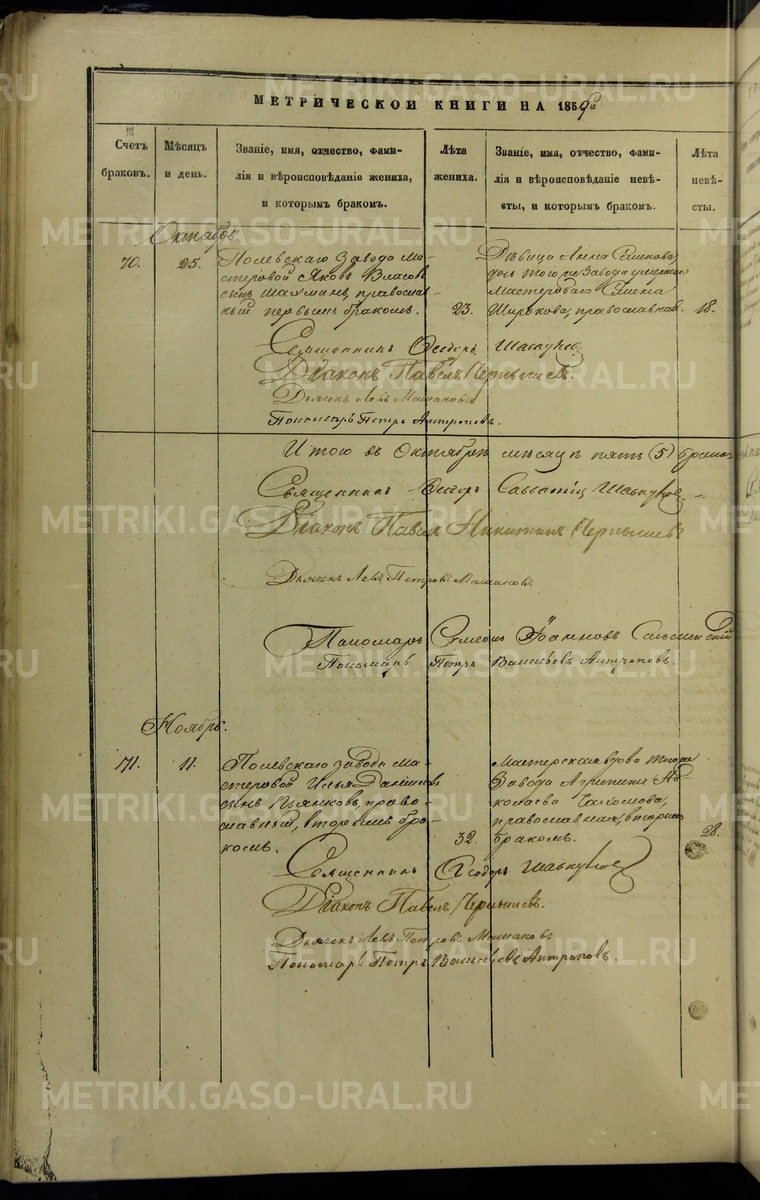 МЕТРИЧЕСКОЙ КНИГИ НА 1859й
Счетъ браковъ.
Мѣсяцъ и день.
Званіе, имя, отчество, фами-
лія и вѣроисповѣданіе жениха,
и которымъ бракомъ.
Лѣта жениха.
Званіе, имя, отчество, фами-
лія и вѣроисповѣданіе невѣ-
сты, и которымъ бракомъ.
Лѣта невѣ-
сты.
Октябрь.
70.
25.
Полевскаго завода ма-
стеровой Яковъ Власовъ
сынъ Шахминъ, православ
ный первымъ бракомъ.
23.
Дѣвица Анна
дочь того же Завода
Мастероваго
Широкова, православная.
18.
Священникъ Ѳеодоръ Шавкуновъ.
Діаконъ Павелъ Чернышевъ.
Дьячекъ Левъ Машановъ
Пономарь Петръ Антроповъ.
Итого въ Октябрѣ мѣсяцѣ пять (5) браковъ
Священникъ Ѳеодоръ Савватіевъ Шавкуновъ.
Діаконъ Павелъ Никитинъ Чернышевъ
Дьячекъ Левъ Петровъ Машановъ
Пономарь Симеонъ Іоанновъ
Пономарь Петръ Васильевъ Антроповъ.
Ноябрь.
71.
11.
Полевскаго завода ма-
стеровой Илья Даниловъ
сынъ Пьянковъ, право-
славный, вторымъ бра-
комъ.
32.
Мастерская вдова того же
Завода Агрипина Ни-
колаева
православная, вторымъ
бракомъ.
28.
Священникъ Ѳеодоръ Шавкуновъ
Діаконъ Павелъ Чернышевъ.
Дьячекъ Левъ Петровъ Машановъ
Пономарь Петръ Васильевъ Антроповъ.
METRIKI.GASO-URAL.RU